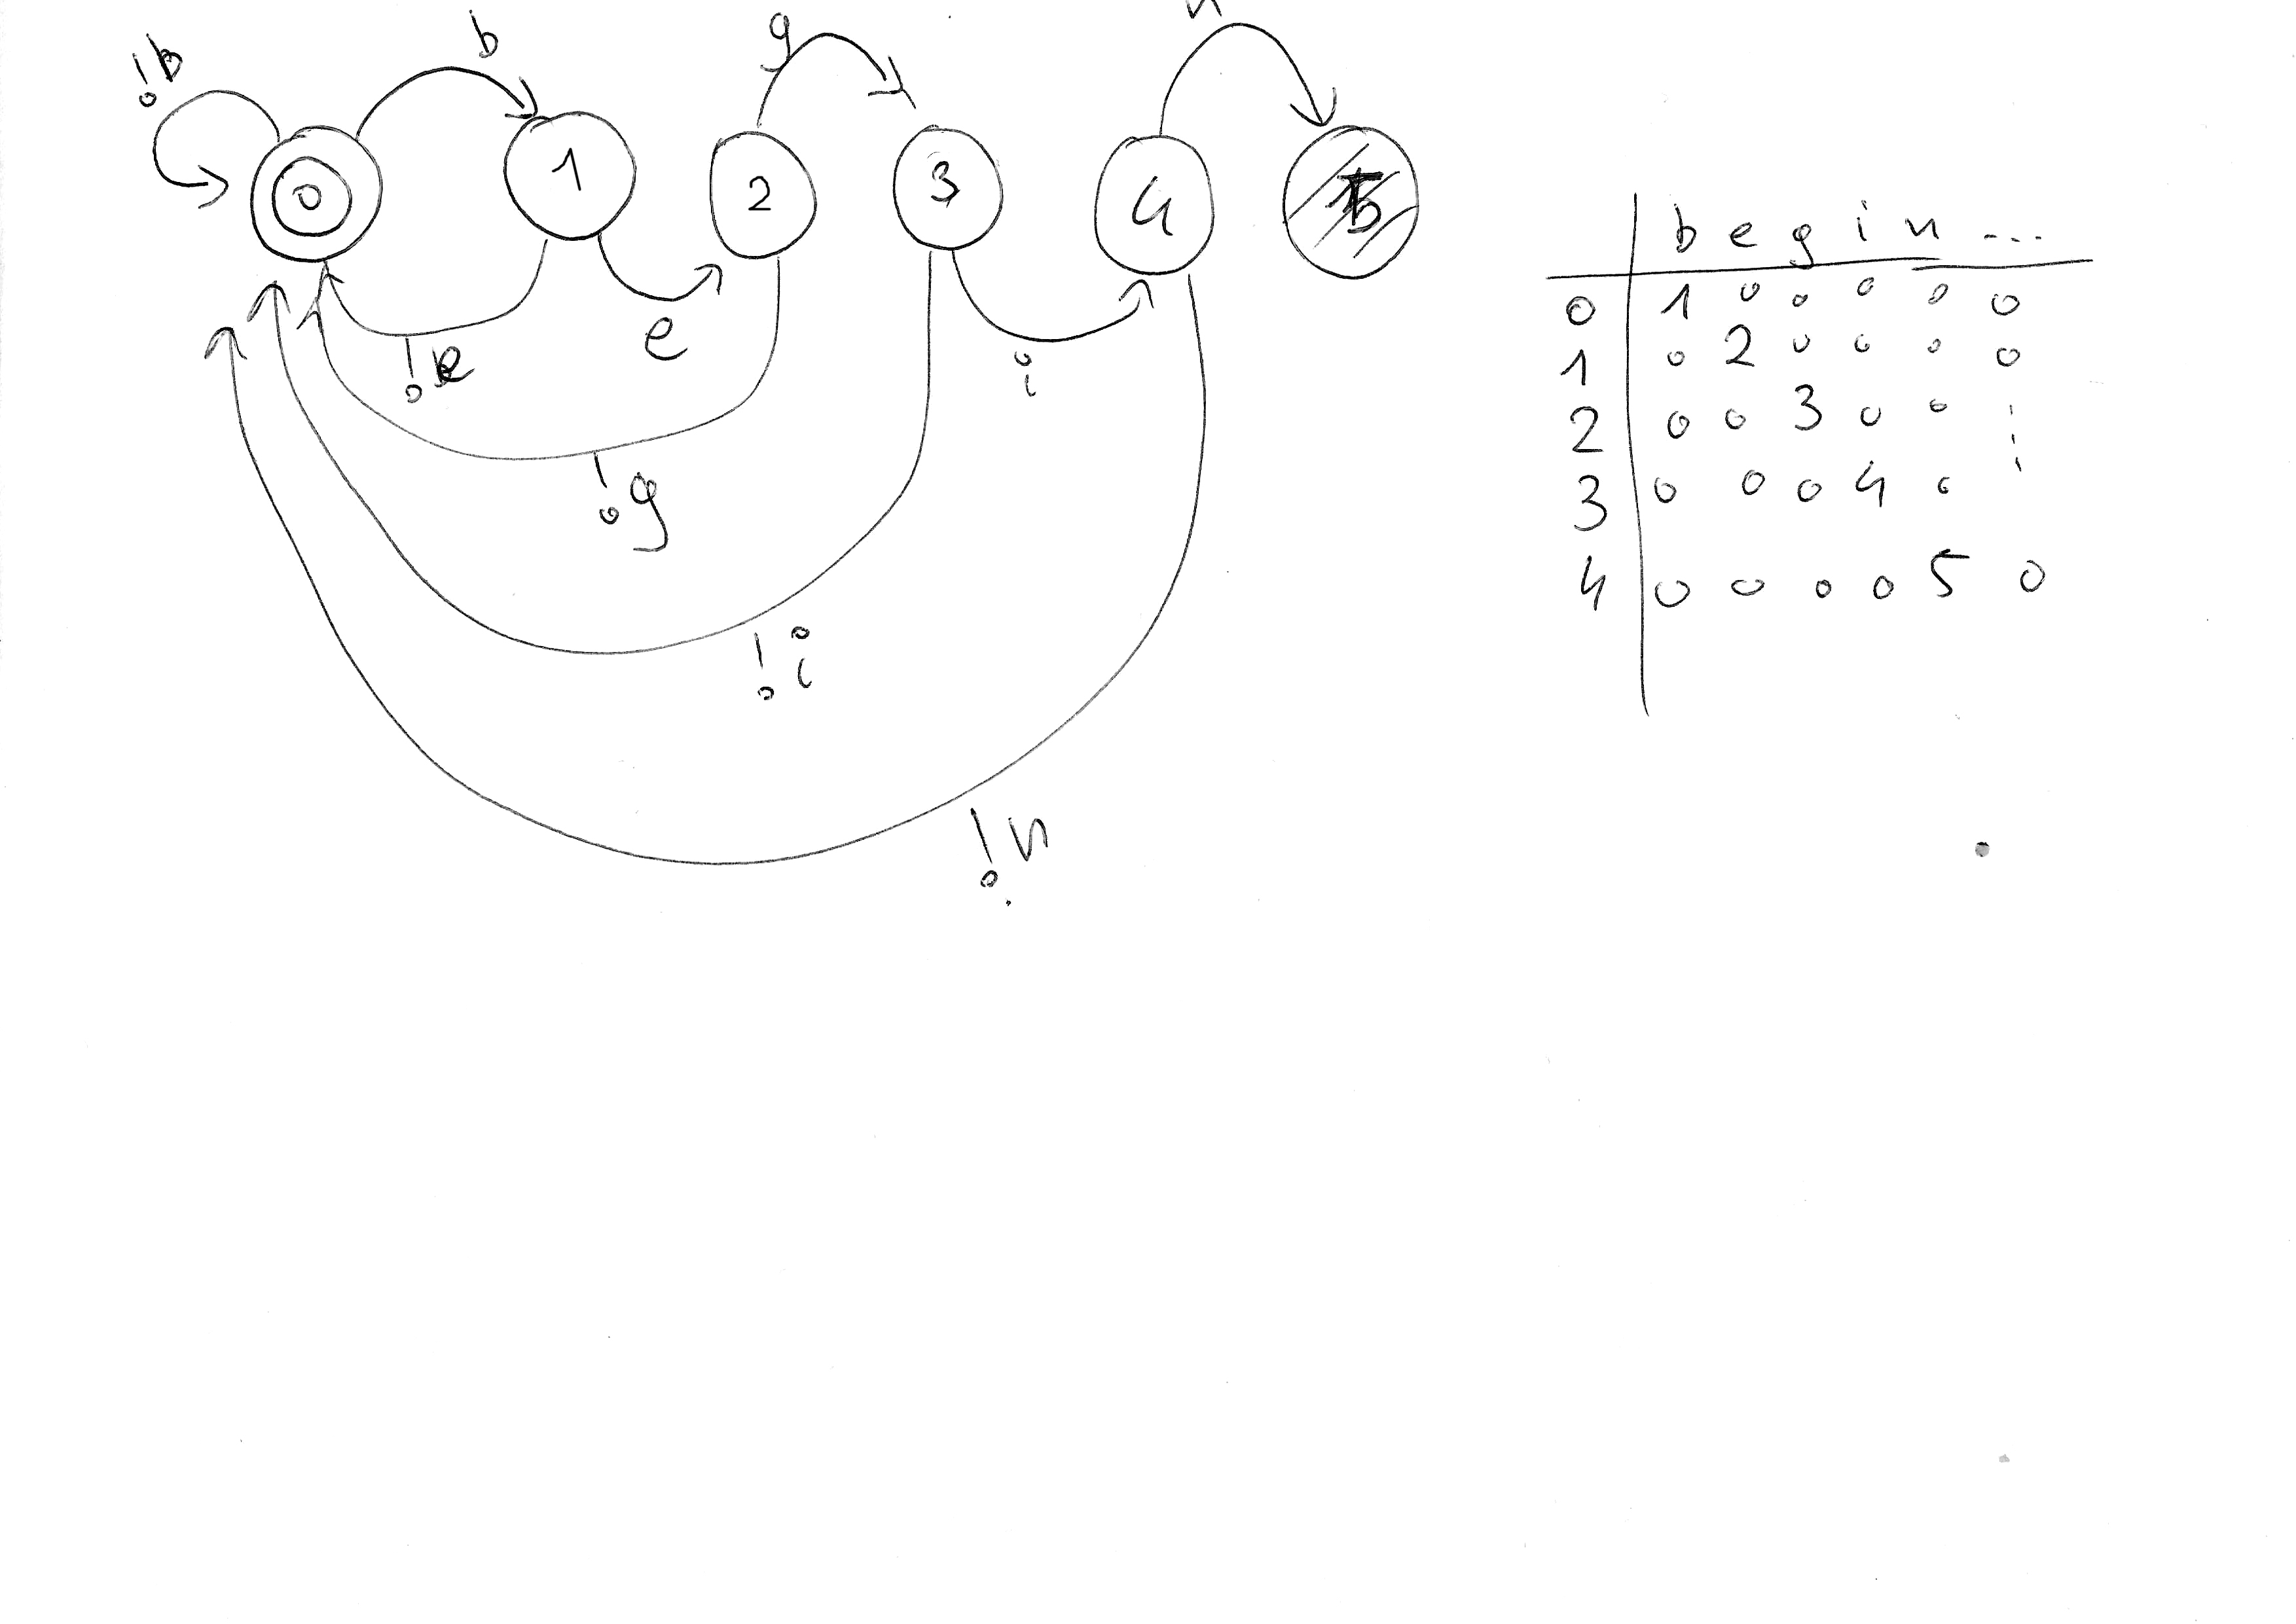 !b b g n
0 1 2 3 4 5
!e e i
!g
!i
!n
b e g i n ...
0 1 0 0 0 0 0
1 0 2 0 0 0 0
2 0 0 3 0 0
3 0 0 0 4 0
4 0 0 0 0 5 0